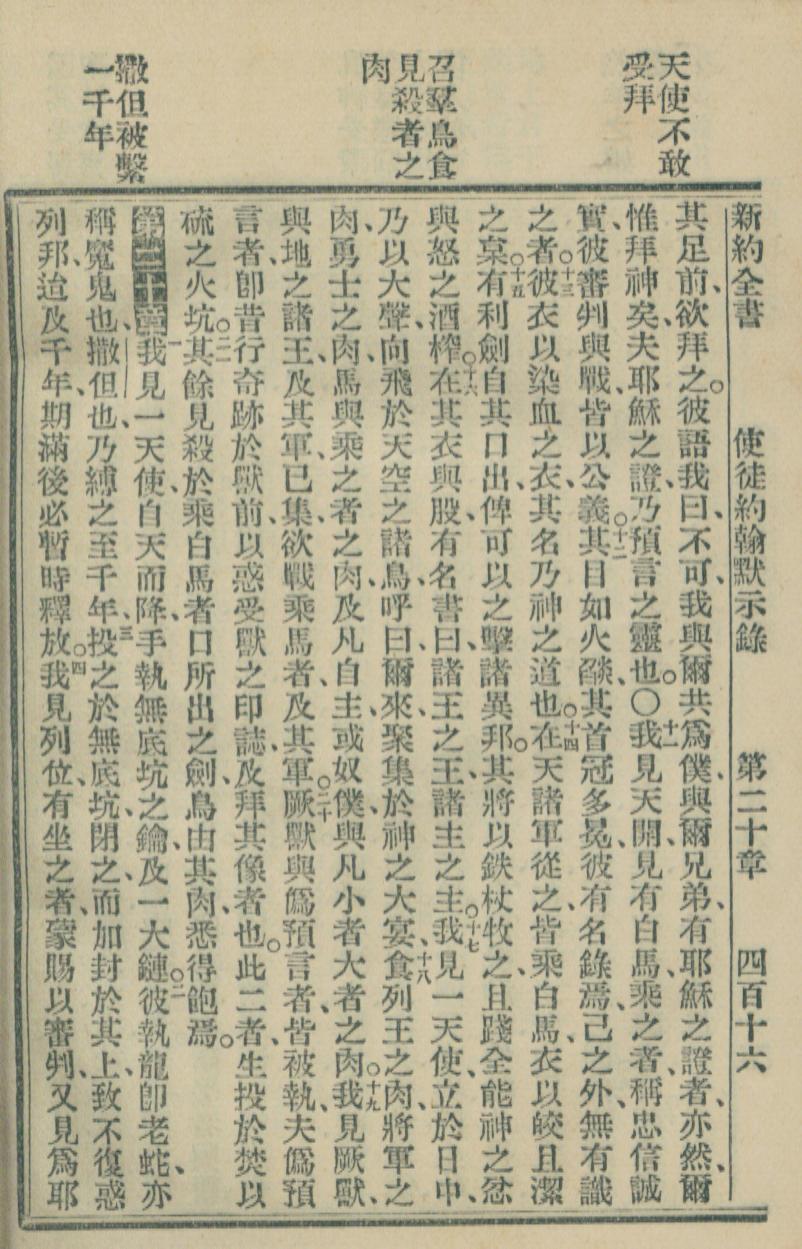 天使不敢
受拜
召羣鳥食
見殺者之
肉
撒但被繫
一千年
新約全書 使徒約翰默示錄 第二十章 四百十六
其足前、欲拜之。彼語我曰、不可、我與爾共爲僕、與爾兄弟、有耶穌之證者、亦然、爾
惟拜神矣、夫耶穌之證、乃預言之靈也。〇十一我見天開、見有白馬、乘之者、稱忠信誠
實、彼審判與戰、皆以公義。十二其目如火燄、其首冠多冕、彼有名錄焉、己之外、無有識
之者。十三彼衣以染血之衣、其名乃神之道也。十四在天諸軍從之、皆乘白馬、衣以皎且潔
之枲。十五有利劍自其口出、俾可以之擊諸異邦。其將以鉄杖牧之、且踐全能神之忿
與怒之酒榨。十六在其衣與股、有名書曰、諸王之王、諸主之主。十七我見一天使、立於日中、
乃以大聲、向飛於天空之諸鳥、呼曰、爾來、聚集於神之大宴、十八食列王之肉、將軍之
肉、勇士之肉、馬與乘之者之肉、及凡自主、或奴僕、與凡小者大者之肉。十九我見厥獸、
與地之諸王、及其軍、已集、欲戰乘馬者、及其軍。二十厥獸與僞預言者、皆被執、夫僞預
言者、卽昔行奇跡於獸前、以惑受獸之印誌、及拜其像者也。此二者、生投於焚以
硫之火坑。二一其餘見殺於乘白馬者口所出之劍、鳥由其肉、悉得飽焉。
第二十章一我見一天使、自天而降、手執無底坑之鑰、及一大鏈。二彼執龍卽老蛇、亦
稱魔鬼也、撒但也、乃縛之至千年、三投之於無底坑、閉之、而加封於其上、致不復惑
列邦、迨及千年、期滿後、必暫時釋放。四我見列位、有坐之者、蒙賜以審判、又見爲耶